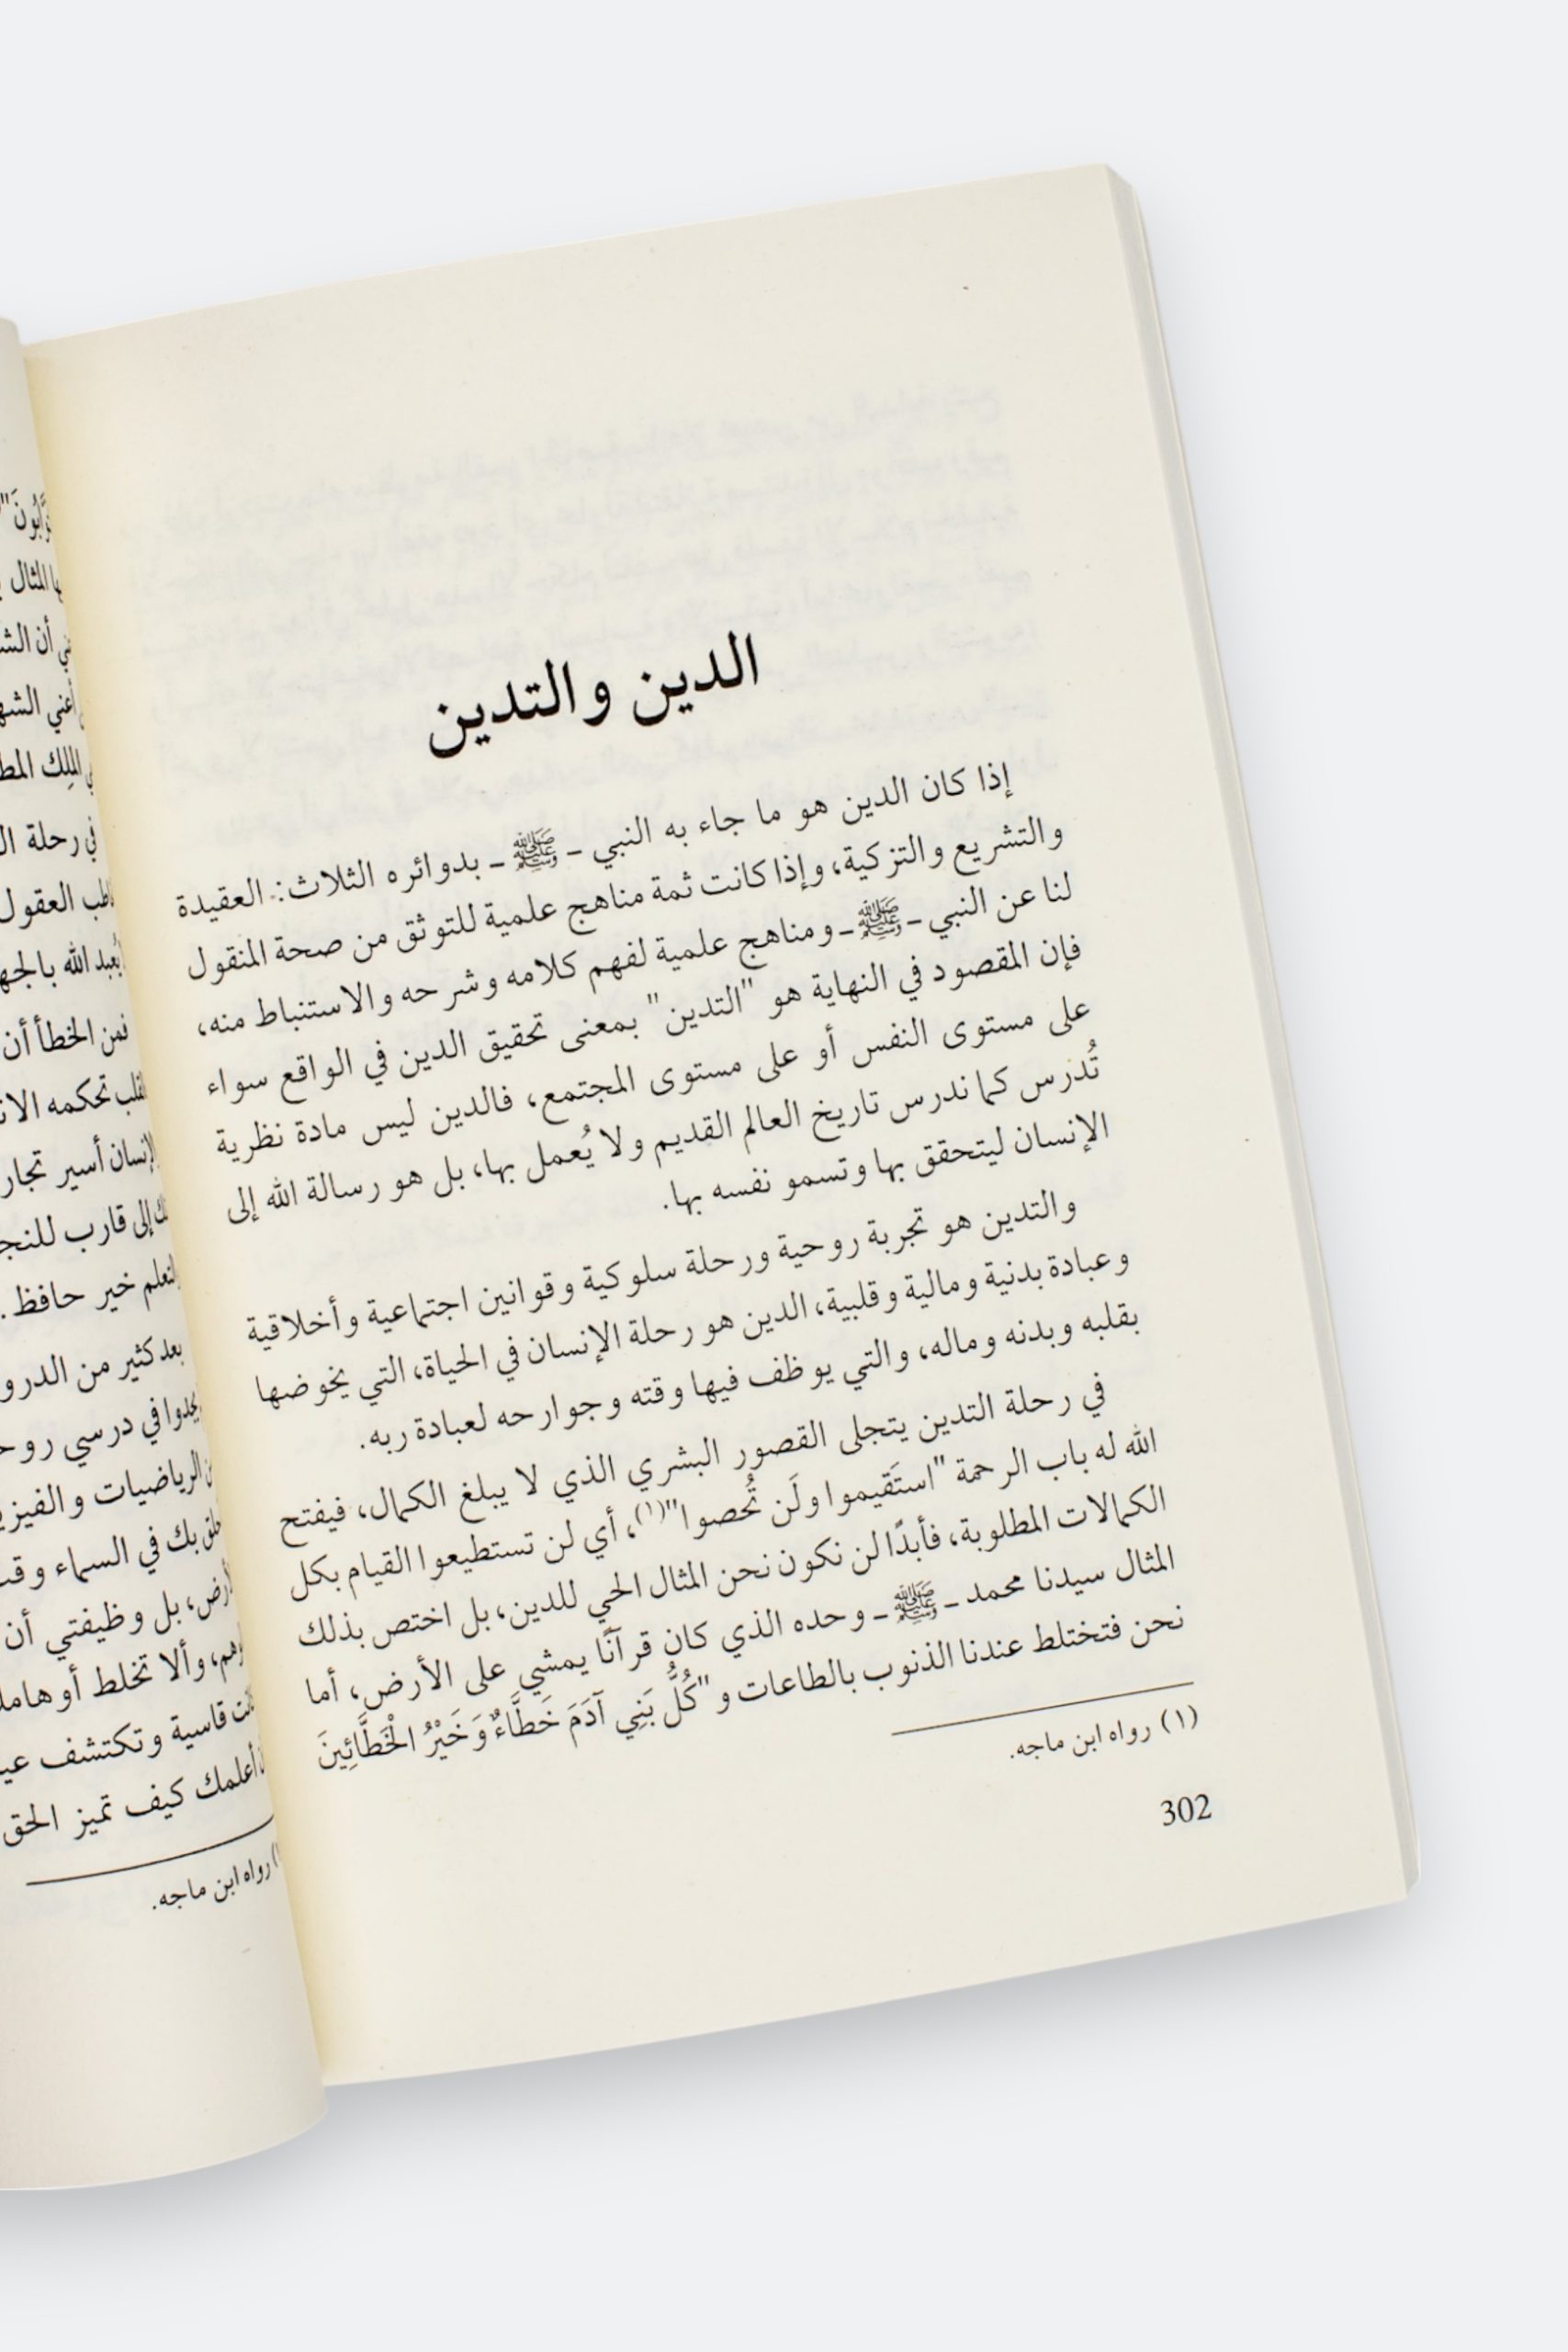 الدين والتدين
إذا كان الدين هو ما جاء به النبي ـ ﷺ ـ بدوائره الثلاث: العقيدة
والتشريع والتزكية، وإذا كانت ثمة مناهج علمية للتوثق من صحة المنقول
لنا عن النبي ـ ﷺ ـ ومناهج علمية لفهم كلامه وشرحه والاستنباط منه،
فإن المقصود في النهاية هو "التدين" بمعنى تحقيق الدين في الواقع سواء
على مستوى النفس أو على مستوى المجتمع، فالدين ليس مادة نظرية
تُدرس كما ندرس تاريخ العالم القديم ولا يُعمل بها، بل هو رسالة الله إلى
الإنسان ليتحقق بها وتسمو نفسه بها.
والتدين هو تجربة روحية ورحلة سلوكية وقوانين اجتماعية وأخلاقية
وعبادة بدنية ومالية وقلبية، الدين هو رحلة الإنسان في الحياة، التي يخوضها
بقلبه وبدنه وماله، والتي يوظف فيها وقته وجوارحه لعبادة ربه.
في رحلة التدين يتجلى القصور البشري الذي لا يبلغ الكمال، فيفتح
الله له باب الرحمة "استَقيموا ولَن تُحصوا"(١)، أي لن تستطيعوا القيام بكل
الكمالات المطلوبة، فأبدًا لن نكون نحن المثال الحي للدين، بل اختص بذلك
المثال سيدنا محمد ـ ﷺ ـ وحده الذي كان قرآنًا يمشي على الأرض، أما
نحن فتختلط عندنا الذنوب بالطاعات و"كُلُّ بَنِي آدَمَ خَطَّاءٌ وَخَيْرُ الْخَطَّائِينَ
(١) رواه ابن ماجه.
302
المثال
أن
أعني
المَلِك
في رحلة
العقول
يُعبد الله
فمن الخطأ أن
تحكمه
أسير
إلى قارب
خير حافظ.
بعد كثير من
في درسي
الرياضيات
بك في السماء
بل وظيفتي أن
وألا تخلط
قاسية وتكتشف
أعلمك كيف تميز الحق
رواه ابن ماجه.